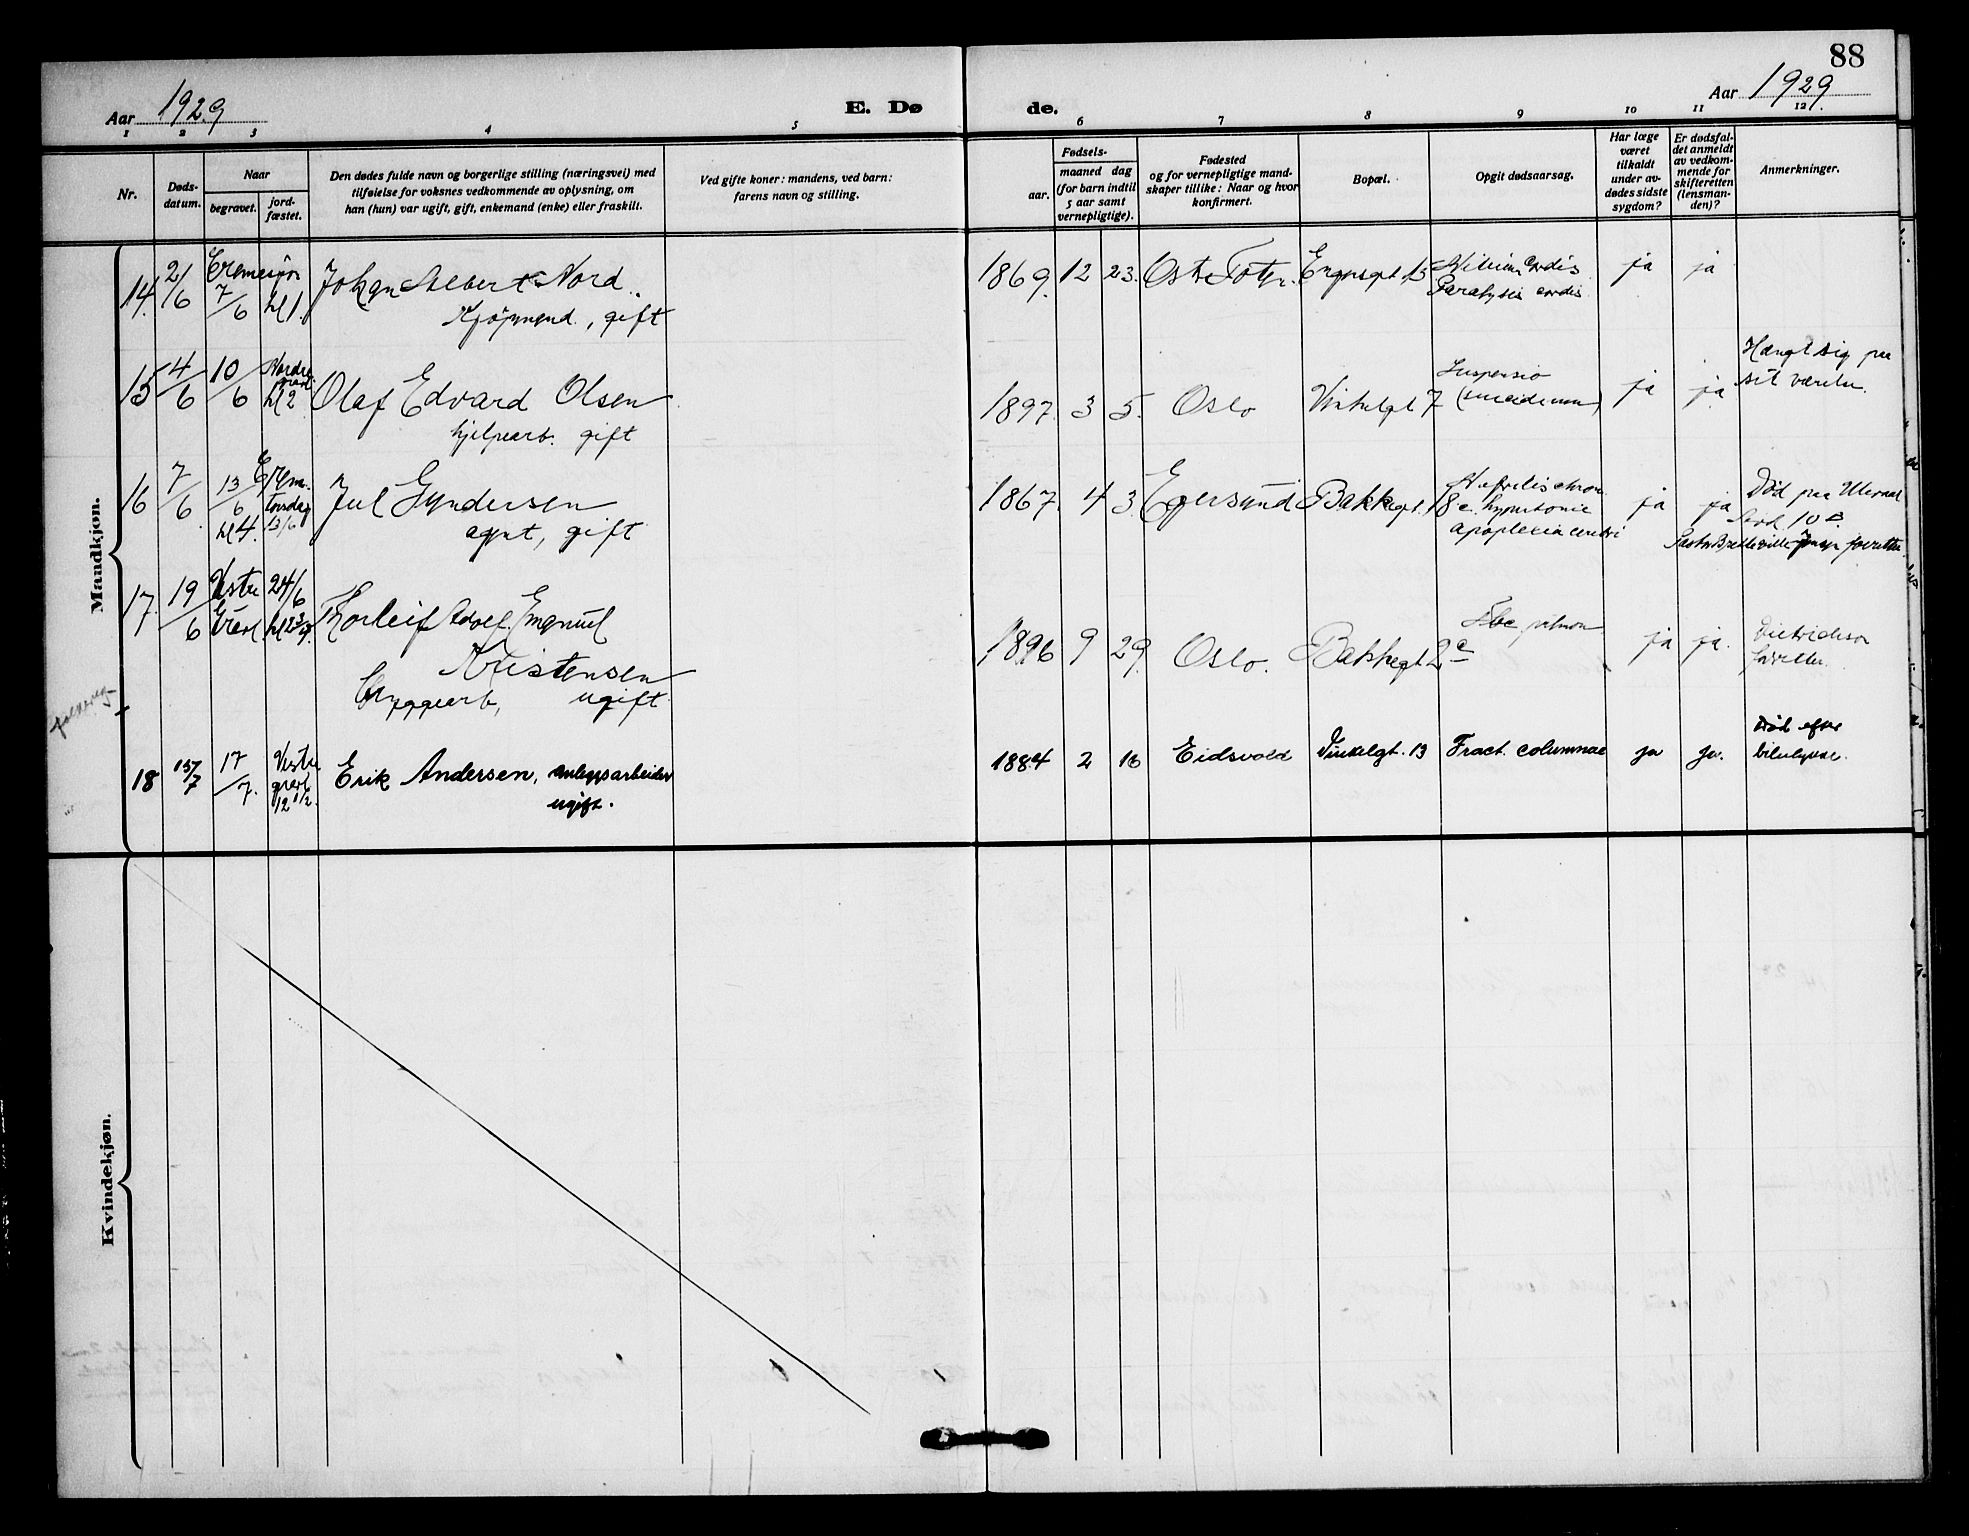 88
Aar 1929
E. Dø
de.
Aar 1929
1 2 3 4 5 6 7 8 9 10 11 12
Nr.
Døds-
datum.
Naar
begravet.
jord-
fæstet.
Den dødes fulde navn og borgerlige stilling (næringsvei) med
tilføielse for voksnes vedkommende av oplysning, om
han (hun) var ugift, gift, enkemand (enke) eller fraskilt.
Ved gifte koner: mandens, ved barn:
farens navn og stilling.
Fødsels-
aar.
maaned dag
(for barn indtil
5 aar samt
vernepligtige).
Fødested
og for vernepligtige mand-
skaper tillike: Naar og hvor
konfirmert.
Bopæl.
Opgit dødsaarsag.
Har læge
været
tilkaldt
under av-
dødes sidste
sygdom?
Er dødsfal-
det anmeldt
av vedkom-
mende for
skifteretten
(lensman-
den)?
Anmerkninger.
Mandkjøn.
14. 2/6 7/6 kl 1. Johan Albert Nord
Kjøpmand, gift
1869. 12 23. Østre Toten. 13
Vitium cordis
Paralysis cordis
ja ja
15 4/6 10/6 Nordre
gravl.
kl 2
Olaf Edvard Olsen
hjelpearb. gift
1897. 3 5. Oslo Vinkelgt 7
Suspensio
(suicidium)
ja ja
Hængt sig paa
sit værelse.
16 7/6 13/6 kl 4. Krem.
torsdag
13/6
Jul Gundersen
agent, gift
1867. 4 3. Egersund Bakkegt. 18 c.
chron.
hypertonie
apoplexia cerebri
ja ja
Død paa Ullevaal
17. 19/6 Vestre
Gravl
24/6
Thorleif Adolf Emanuel
Kristensen
Bryggearb, ugift
1896 9 29. Oslo. Bakkegt 2 c
Tbc pulmon
ja ja.
Dietrichson
forretter.
18 13/7 17/7. Vestre
gravl.
12 1/2.
Erik Andersen, anlegsarbeider
ugift.
1884 2 16 Eidsvold Vinkelgt. 13 Fract. columnae ja ja.
Død efter
bilulykke.
Kvindekjøn.